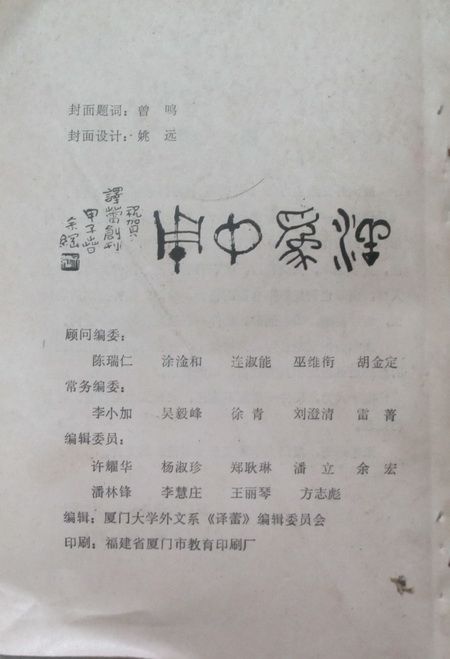 封面题词：曾 鸣
封面设计：姚 远
洋為中用
祝賀
譯蕾創刊
甲子春
余綱
顾问编委：
陈瑞仁 涂淦和 连淑能 巫维衔 胡金定
常务编委：
李小加 吴毅峰 徐 青 刘澄清 雷 菁
编辑委员：
许耀华 杨淑珍 郑耿琳 潘 立 余 宏
潘林锋 李慧庄 王丽琴 方志彪
编辑：厦门大学外文系《译蕾》编辑委员会
印刷：福建省厦门市教育印刷厂